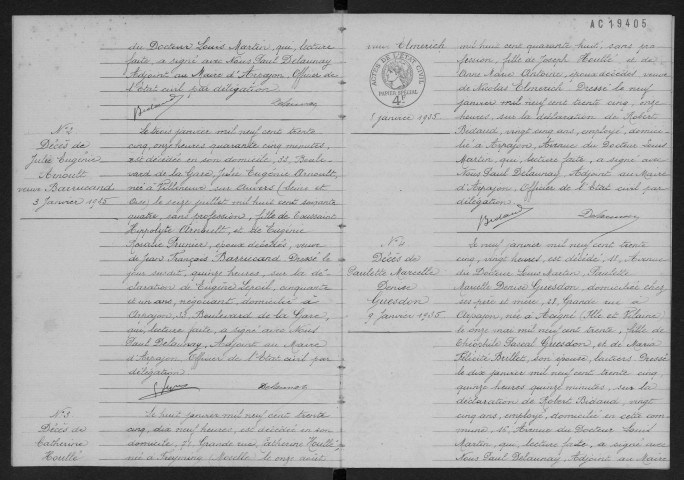 AC 19405
du Docteur Louis Martin, qui, lecture
faite, a signé avec Nous Paul Delaunay
Adjoint au Maire d'Arpajon, Officier de
l'Etat civil par délégation
Bidaud
Delaunay
N° 2
Décès de
Julie Eugénie
Arnoult
veuve Barrucand
3 Janvier 1935
Le trois janvier mil neuf cent trente
cinq, onze heures quarante cinq minutes,
est décédée en son domicile, 33, Boule-
vard de la Gare, Julie Eugénie Arnoult,
née à Villeneuve sur Auvers (Seine et
Oise) le seize juillet mil huit cent soixante
quatre, sans profession, fille de Toussaint
Hippolyte Arnoult, et de Eugénie
Rosalie Prunier, époux décédés, veuve
de Jean François Barrucand. Dressé le
jour suivant, quinze heures, sur la dé-
claration de Eugène, cinquante
et un ans, négociant, domicilié à
Arpajon, 33, Boulevard de la Gare,
qui, lecture faite, a signé avec Nous
Paul Delaunay, Adjoint au Maire
d'Arpajon, Officier de l'Etat civil par
délégation
Delaunay
N° 3
Décès de
Catherine
Houllé
Le huit janvier mil neuf cent trente
cinq, dix neuf heures, est décédée en son
domicile, Grande rue, Catherine Houllé
née à Freyming (Moselle) le onze août
veuve Elmerich
ACTES DE L'ETAT CIVIL
PAPIER SPECIAL
4F
8 janvier 1935
mil huit cent quarante huit, sans pro
fession, fille de Joseph Houllé, et de
Anne Marie Antoine, époux décédés, veuve
de Nicolas Elmerich. Dressé le neuf
janvier mil neuf cent trente cinq, onze
heures, sur la déclaration de Robert
Bidaud, vingt cinq ans, employé, domici-
lié à Arpajon, Avenue du Docteur Louis
Martin, qui, lecture faite, a signé avec
Nous Paul Delaunay, Adjoint au Maire
d'Arpajon, Officier de l'Etat civil par
délégation.
Bidaud
Delaunay
N° 4
Décès de
Paulette Marcelle
Denise
Guesdon
9 Janvier 1935
Le neuf janvier mil neuf cent trente
cinq, vingt heures, est décédée, 18, Avenue
du Docteur Louis Martin, Paulette
Marcelle Denise Guesdon, domiciliée chez
ses père et mère, 28, Grande rue à
Arpajon, née à Acigné (Ille et Vilaine)
le onze mai mil neuf cent trente, fille de
Théophile Pascal Guesdon, et de Maria
Félicité Berllet, son épouse, laitiers. Dressé
le dix janvier mil neuf cent trente cinq,
quinze heures quinze minutes, sur la
déclaration de Robert Bidaud, vingt
cinq ans, employé, domicilié en cette com
mune, 16, Avenue du Docteur Louis
Martin, qui, lecture faite, a signé avec
Nous Paul Delaunay, Adjoint au Maire